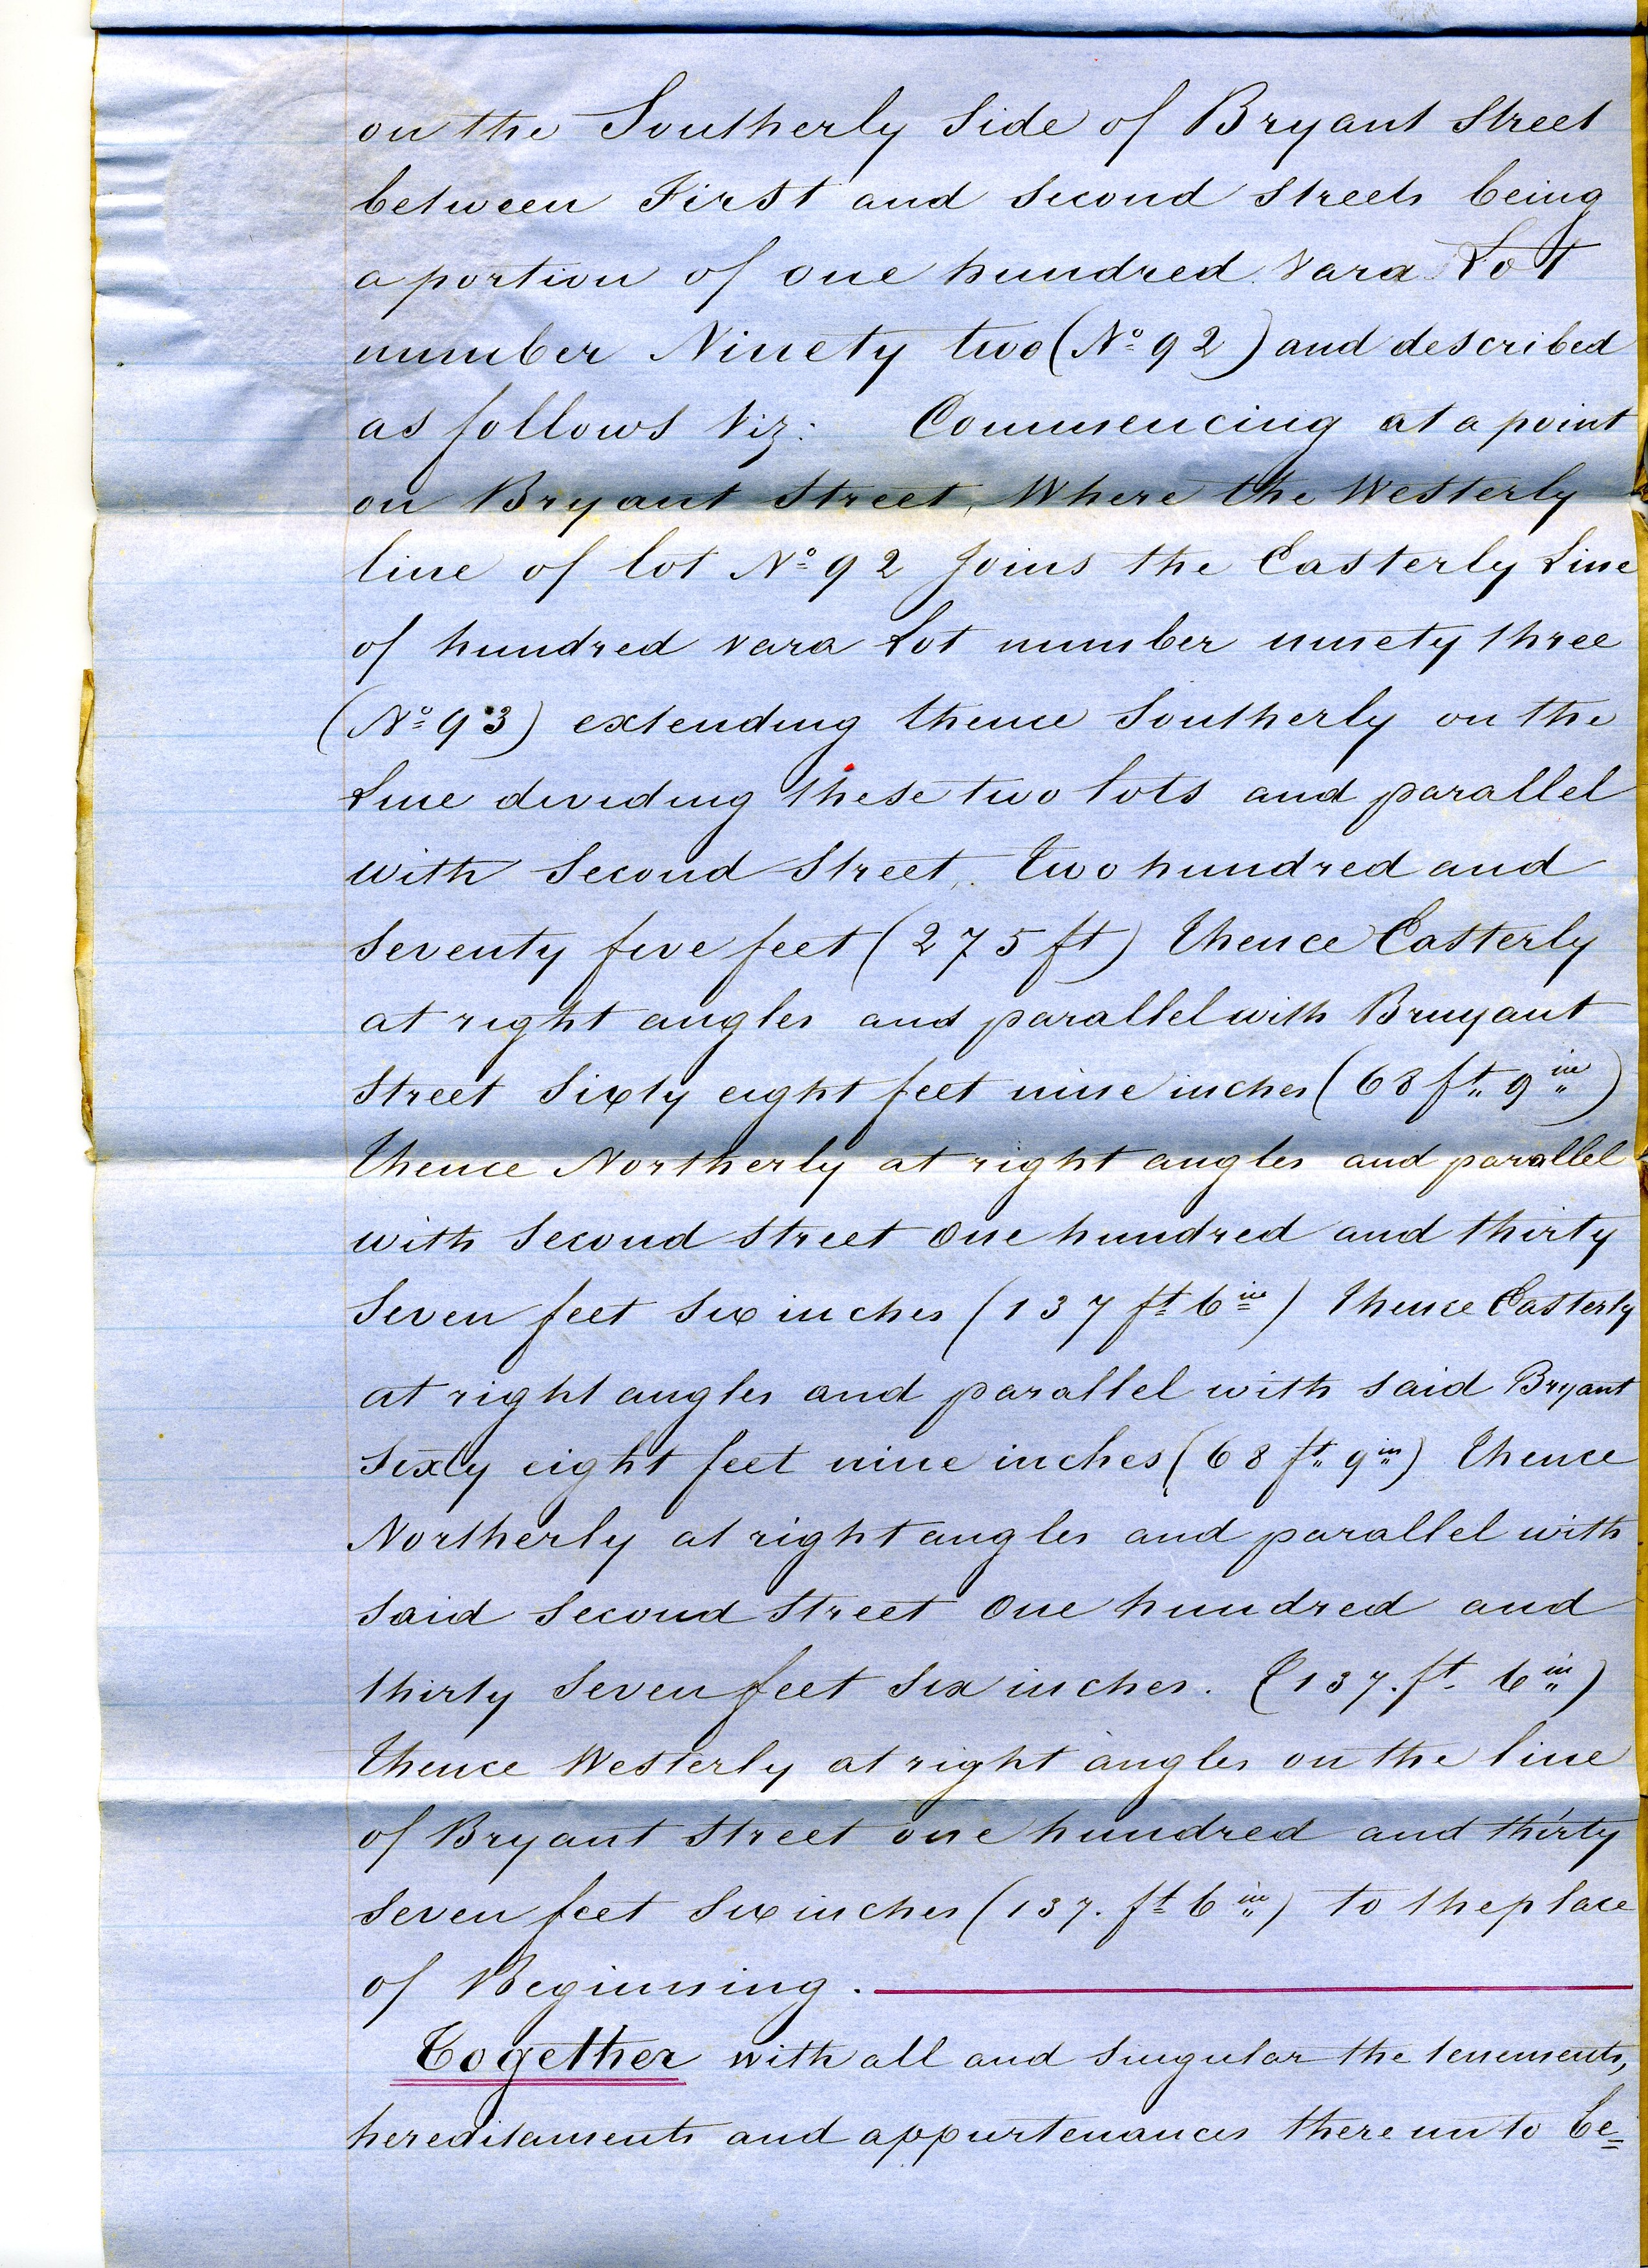 on the Southerly Side of Bryant Street
between First and Second Streets being
a portion of one hundred Vara Lot
number Ninety two (Nº 92) and described
as follows Viz: Commencing at a point
on Bryant Street, Where the Westerly
line of lot Nº 92 Joins the Easterly Line
of hundred Vara Lot number ninety three
(Nº 93) extending thence Southerly on the
Line dividing these two lots and parallel
with Second Street, two hundred and
Seventy five feet (275 ft) Thence Easterly
at right angles and parallel with Bruyant
Street Sixty eight feet nine inches (68 ft. 9 in)
Thence Northerly at right angles and parallel
with Second Street One hundred and thirty
Seven feet Six inches (137 ft 6 in) Thence Easterly
at right angles and parallel with Said Bryant
Sixty eight feet nine inches (68 ft. 9 in) Thence
Northerly at right angles and parallel with
Said Second Street One hundred and
thirty Seven feet Six inches. (137. ft. 6 in)
Thence Westerly at right angles on the line
of Bryant Street one hundred and thirty
Seven feet Six inches (137. ft 6 in) to the place
of Beginning.
Together with all and Singular the tenements,
hereditaments and appurtenances there unto be=